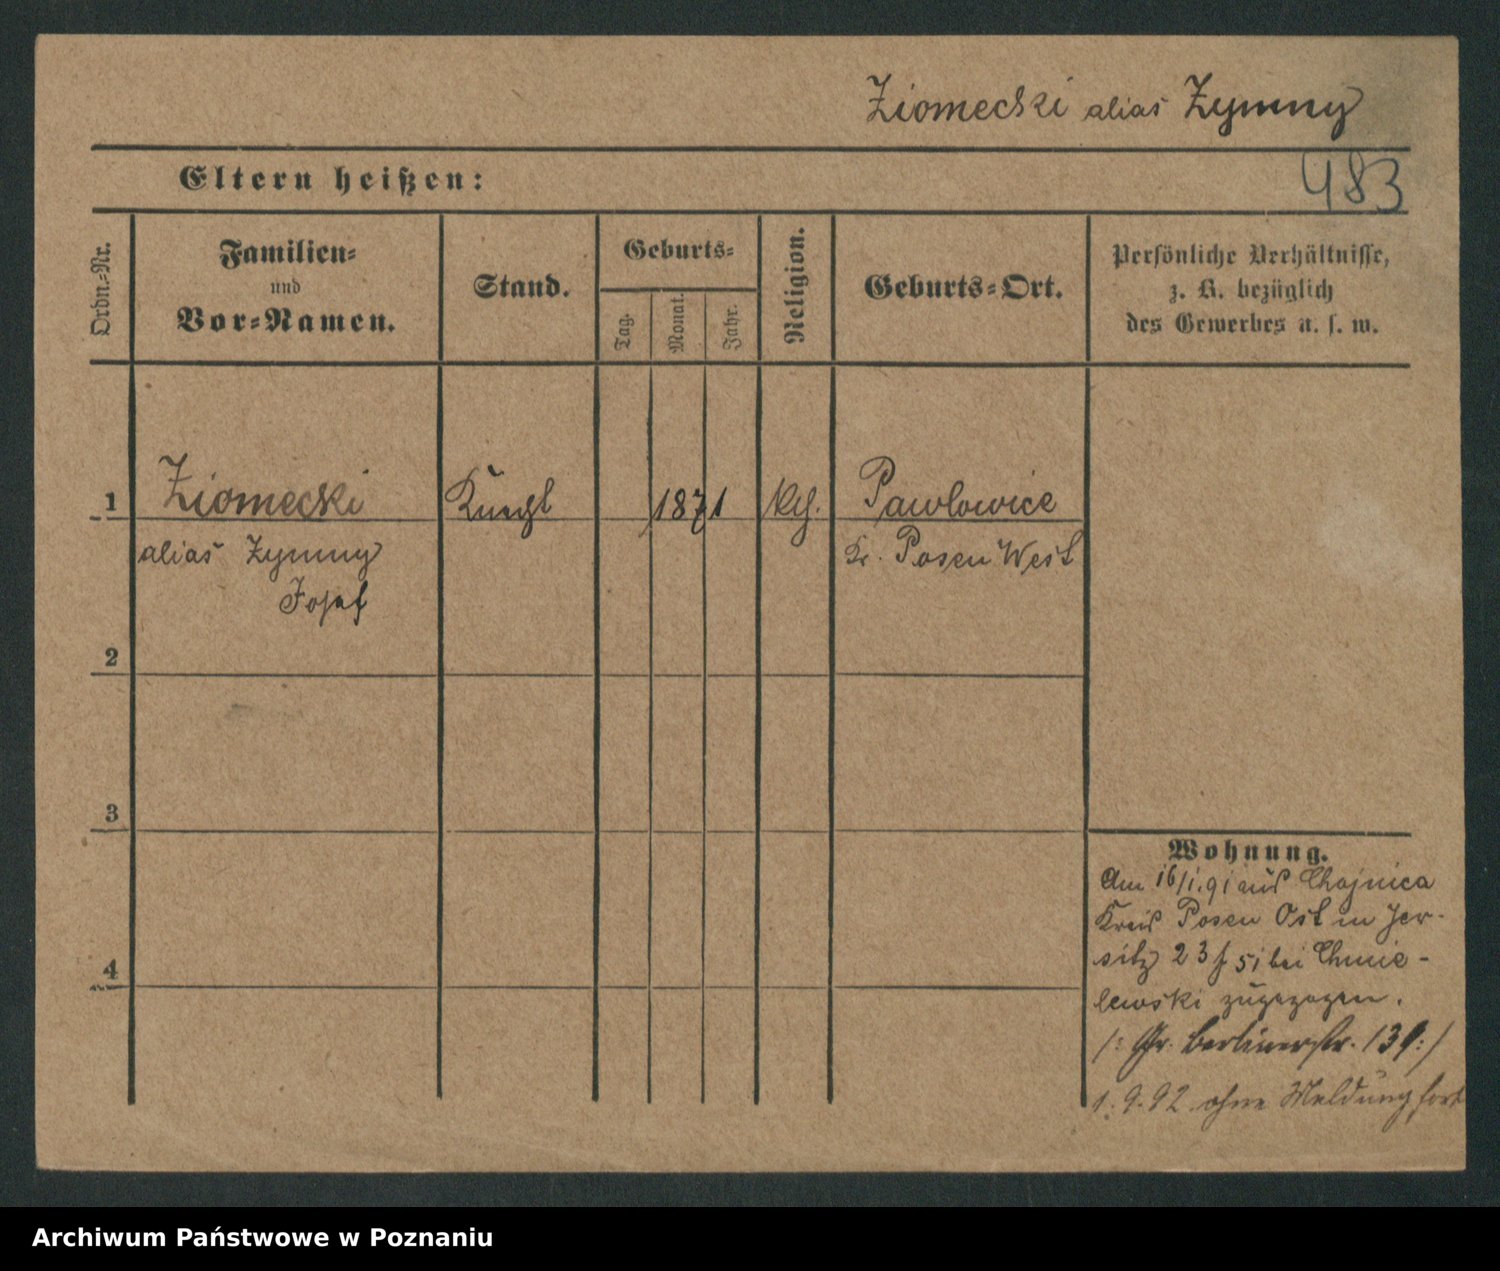 Ziomecki alias Zymny
Eltern heißen:
483
Ordn.-Nr.
Familien-
und
Vor-Namen.
Stand.
Geburts-
Tag.
Monat.
Jahr.
Religion.
Geburts-Ort.
Persönliche Verhältnisse,
z. B. bezüglich
des Gewerbes u. s. w.
1 Ziomecki Knecht 1871 kth. Pawlowice
alias Zymny Kr. Posen West
Josef
2
3
4
Wohnung.
Am 16/1.91 aus Chojnica
Kreis Posen Ost in Jer-
sitz 23 f 51 bei Chmie-
lewski zugezogen.
/: Gr. Berlinerstr. 139:/
1.9.92 ohne Meldung fort